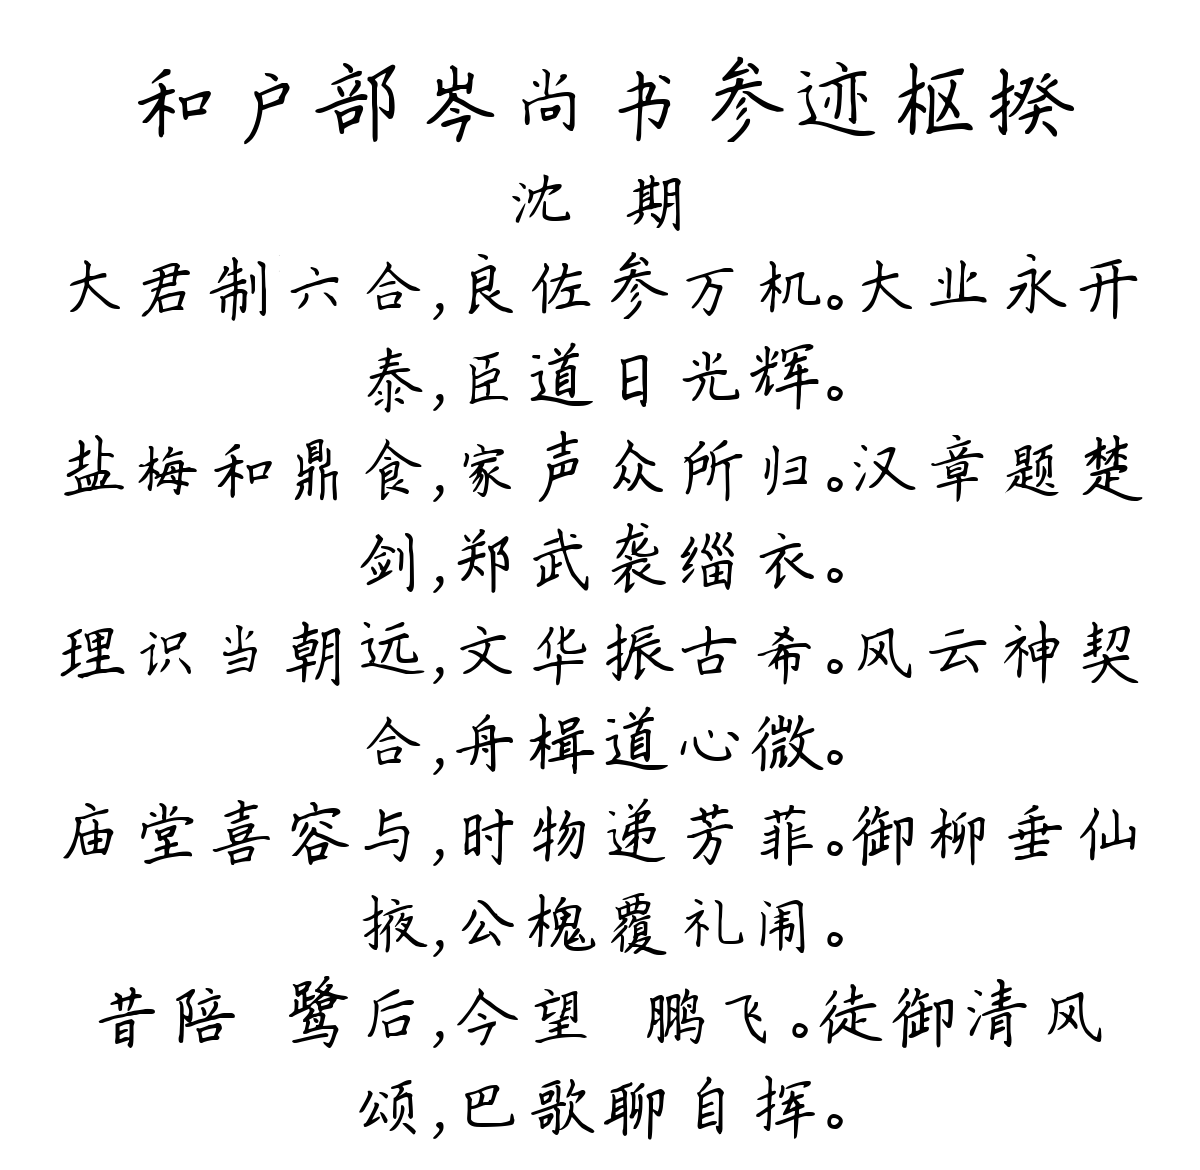 和户部岑尚书参迹枢揆
沈 期
大君制六合,良佐参万机。大业永开
泰,臣道日光辉。
盐梅和鼎食,家声众所归。汉章题楚
剑,郑武袭缁衣。
理识当朝远,文华振古希。风云神契
合,舟楫道心微。
庙堂喜容与,时物递芳菲。御柳垂仙
掖,公槐覆礼闱。
昔陪 鹭后,今望 鹏飞。徒御清风
颂,巴歌聊自挥。